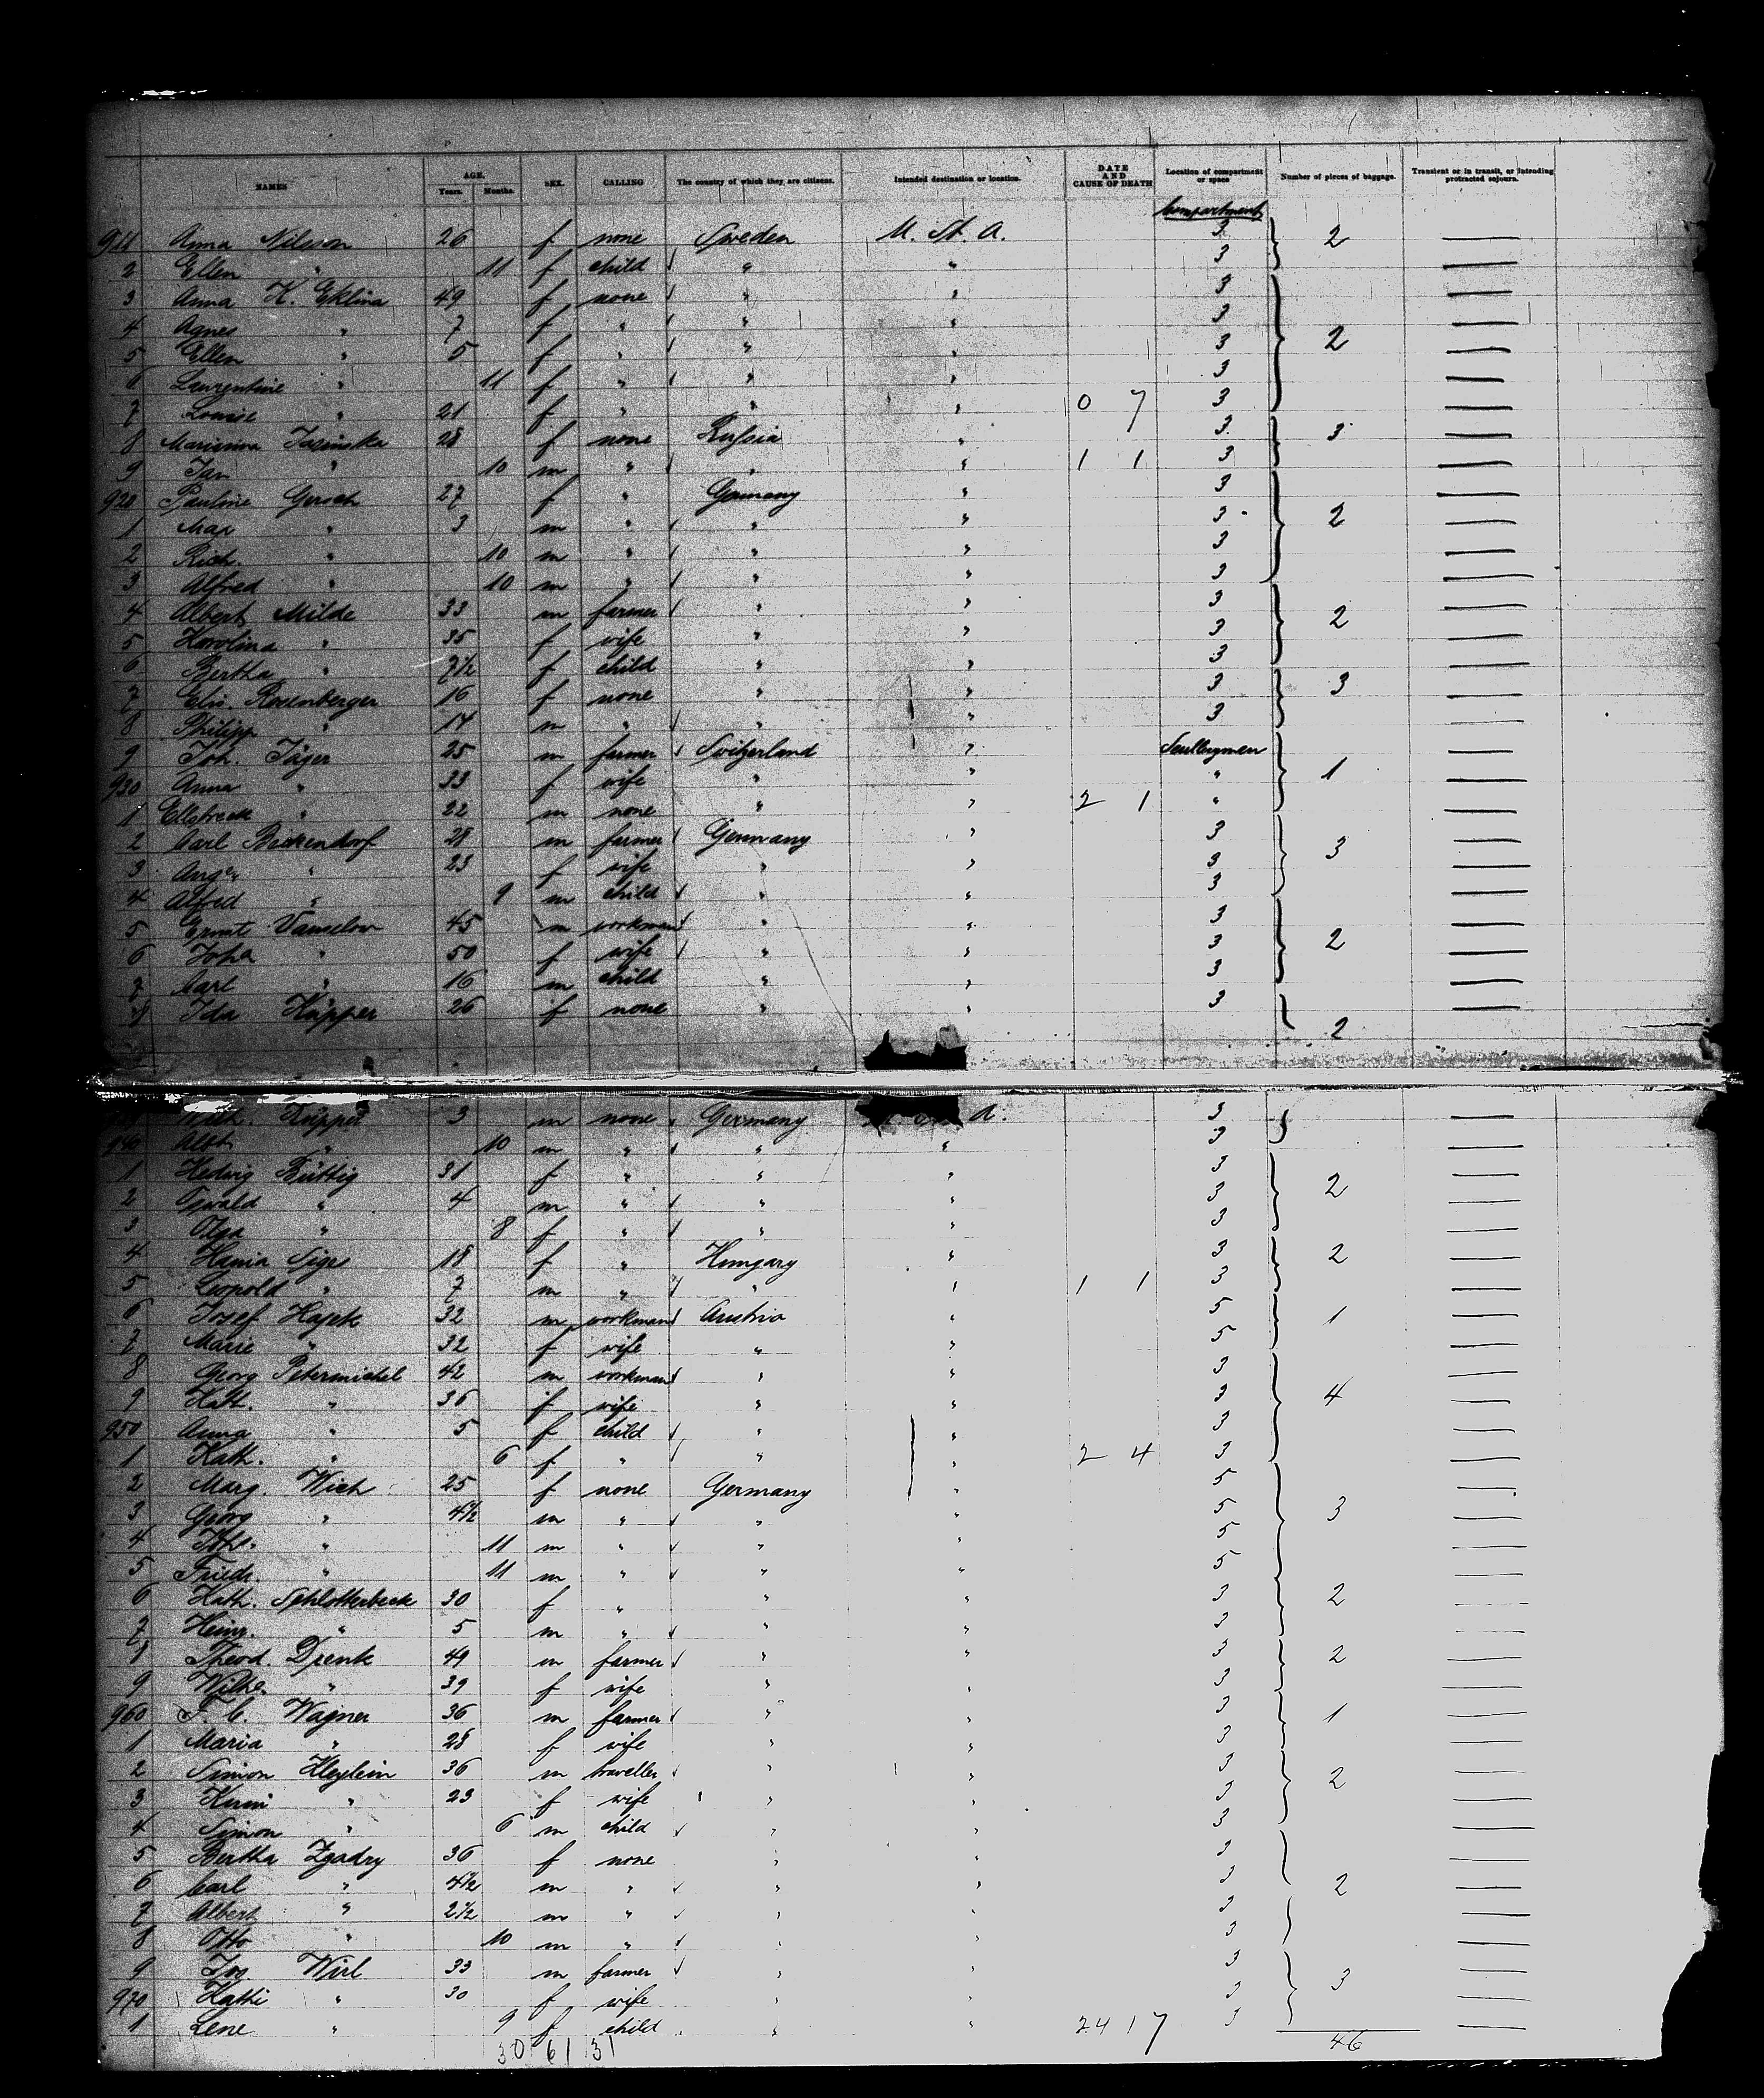 NAMES AGE. Years. Months. SEX. CALLING The country of which they are citizens. Intended destination or location. DATE AND CAUSE OF DEATH Location of compartment or space Number of pieces of baggage. Transient or in transit, or intending protracted sojourn.
compartment
911 Anna Nilsson 26 f none Sweden U. St. A. 3 2 —
2 Ellen " 11 f child " " 3 —
3 Anna K. Eklina 49 f none " " 3 —
4 Agnes " 7 f " " " 3 —
5 Ellen " 5 f " " " 3 2 —
6 Laurentine " 11 f " " " 3 —
7 Louise " 21 f " " " 0 7 3 —
8 Marianna Jasinska 28 f none Russia " 3 3 —
9 Jan " 10 m " " " 1 1 3 —
920 Pauline Gersch 27 f " Germany " 3 —
1 Max " 3 m " " " 3 2 —
2 Rich. " 10 m " " " 3 —
3 Alfred " 10 m " " " 3 —
4 Albert Milde 33 m farmer " " 3 2 —
5 Karolina " 35 f wife " " 3 —
6 Bertha " 2½ f child " " 3 —
7 Elis. Rosenberger 16 f none " " 3 3 —
8 Philipp " 14 m " " " 3 —
9 Joh. Jäger 25 m farmer Switzerland " —
930 Anna " 33 f wife " " " 1 —
1 " 22 m none " " 2 1 " —
2 Carl Beckendorf 28 m farmer Germany " 3 3 —
3 Auge " 23 f wife " " 3 —
4 Alfred " 9 m child " " 3 —
5 Ernst Vanselow 45 m workman " " 3 2 —
6 Joha " 50 f wife " " 3 —
7 Carl " 16 m child " " 3 —
8 Ida Küpper 26 f none " " 3 2 —
Küpper 3 m none Germany A. 3 —
940 Alb. " 10 m " " " 3 —
1 Hedwig Büttig 31 f " " " 3 2 —
2 Oswald " 4 m " " " 3 —
3 Olga " 8 f " " " 3 —
4 Hania Sigr 18 f " Hungary " 3 2 —
5 Leopold " 7 m " " " 1 1 3 —
6 Josef Hajek 32 m workman Austria " 5 1 —
7 Marie " 32 f wife " " 5 —
8 Georg Petermichel 42 m workman " " 3 —
9 Kath. " 36 f wife " " 3 4 —
950 Anna " 5 f child " " 3 —
1 Kath. " 6 f " " " 2 4 3 —
2 Marg. Wich 25 f none Germany " 5 —
3 Georg " 4½ m " " " 5 3 —
4 Joh. " 11 m " " " 5 —
5 Friedr. " 11 m " " " 5 —
6 Kath. Schlotterbeck 30 f " " " 3 2 —
7 Heinr. " 5 m " " " 3 —
8 Theod. Drenk 49 m farmer " " 3 2 —
9 Wilhe. " 39 f wife " " 3 —
960 F. C. Wagner 36 m farmer " " 3 1 —
1 Maria " 28 f wife " " 3 —
2 Simon Heylein 36 m traveller " " 3 2 —
3 Kuni " 23 f wife " " 3 —
4 Simon " 6 m child " " 3 —
5 Bertha Zgadry 36 f none " " 3 —
6 Carl " 4½ m " " " 3 2 —
7 Albert " 2½ m " " " 3 —
8 Otto " 10 m " " " 3 —
9 Jos. Wirl 33 m farmer " " 3 3 —
970 Kathi " 30 f wife " " 3 —
1 Lene " 9 f child " " 24 17 3 —
30 61 31 46